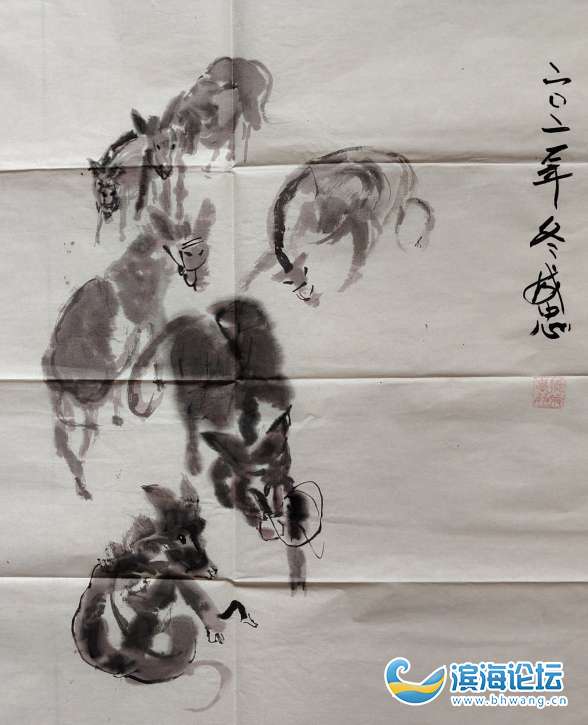 二〇二一年冬成忠
滨海论坛
www.bhwang.cn